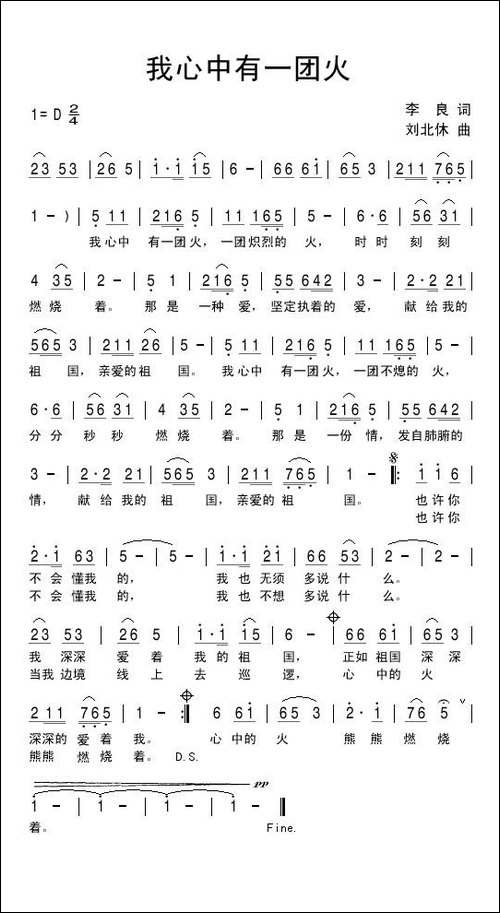 我心中有一团火
1=D 2/4
李 良 词
刘北休 曲
23 53 | 26 5 | 1·1 15 | 6 - | 66 61 | 65 3 | 211 765 |
1 - ) | 5 11 | 216 5 | 11 165 | 5 - | 6·6 | 56 31 |
我心中 有一团火, 一团炽烈的 火, 时时 刻刻
4 35 | 2 - | 5 1 | 216 5 | 55 642 | 3 - | 2·2 21 |
燃烧 着。 那是 一种爱, 坚定执着的 爱, 献给我的
565 3 | 211 26 | 5 - | 5 11 | 216 5 | 11 165 | 5 - |
祖 国, 亲爱的祖 国。 我心中 有一团火, 一团不熄的 火,
6·6 | 56 31 | 4 35 | 2 - | 5 1 | 216 5 | 55 642 |
分分 秒秒 燃烧 着。 那是 一份情, 发自肺腑的
3 - | 2·2 21 | 565 3 | 211 765 | 1 - |: 1 1 6 |
情, 献给我的 祖 国, 亲爱的祖 国。 也许你
也许你
2·1 63 | 5 - | 5 - | 1·1 21 | 66 53 | 2 - |
不会懂我 的, 我也无须 多说什 么。
不会懂我 的, 我也不想 多说什 么。
23 53 | 26 5 | 1·1 15 | 6 - | 66 61 | 65 3 |
我 深深 爱着 我的祖 国, 正如祖国 深深
当我边境 线上 去巡 逻, 心中的 火
2 11 765 | 1 - :| 6 61 | 65 3 | 2·1 | 76 5 ∨ |
深深的爱着 我。 心中的 火 熊熊 燃烧
熊熊 燃烧 着。 D.S.
pp
1 - | 1 - | 1 - | 1 - | 1 - ‖
着。 Fine.